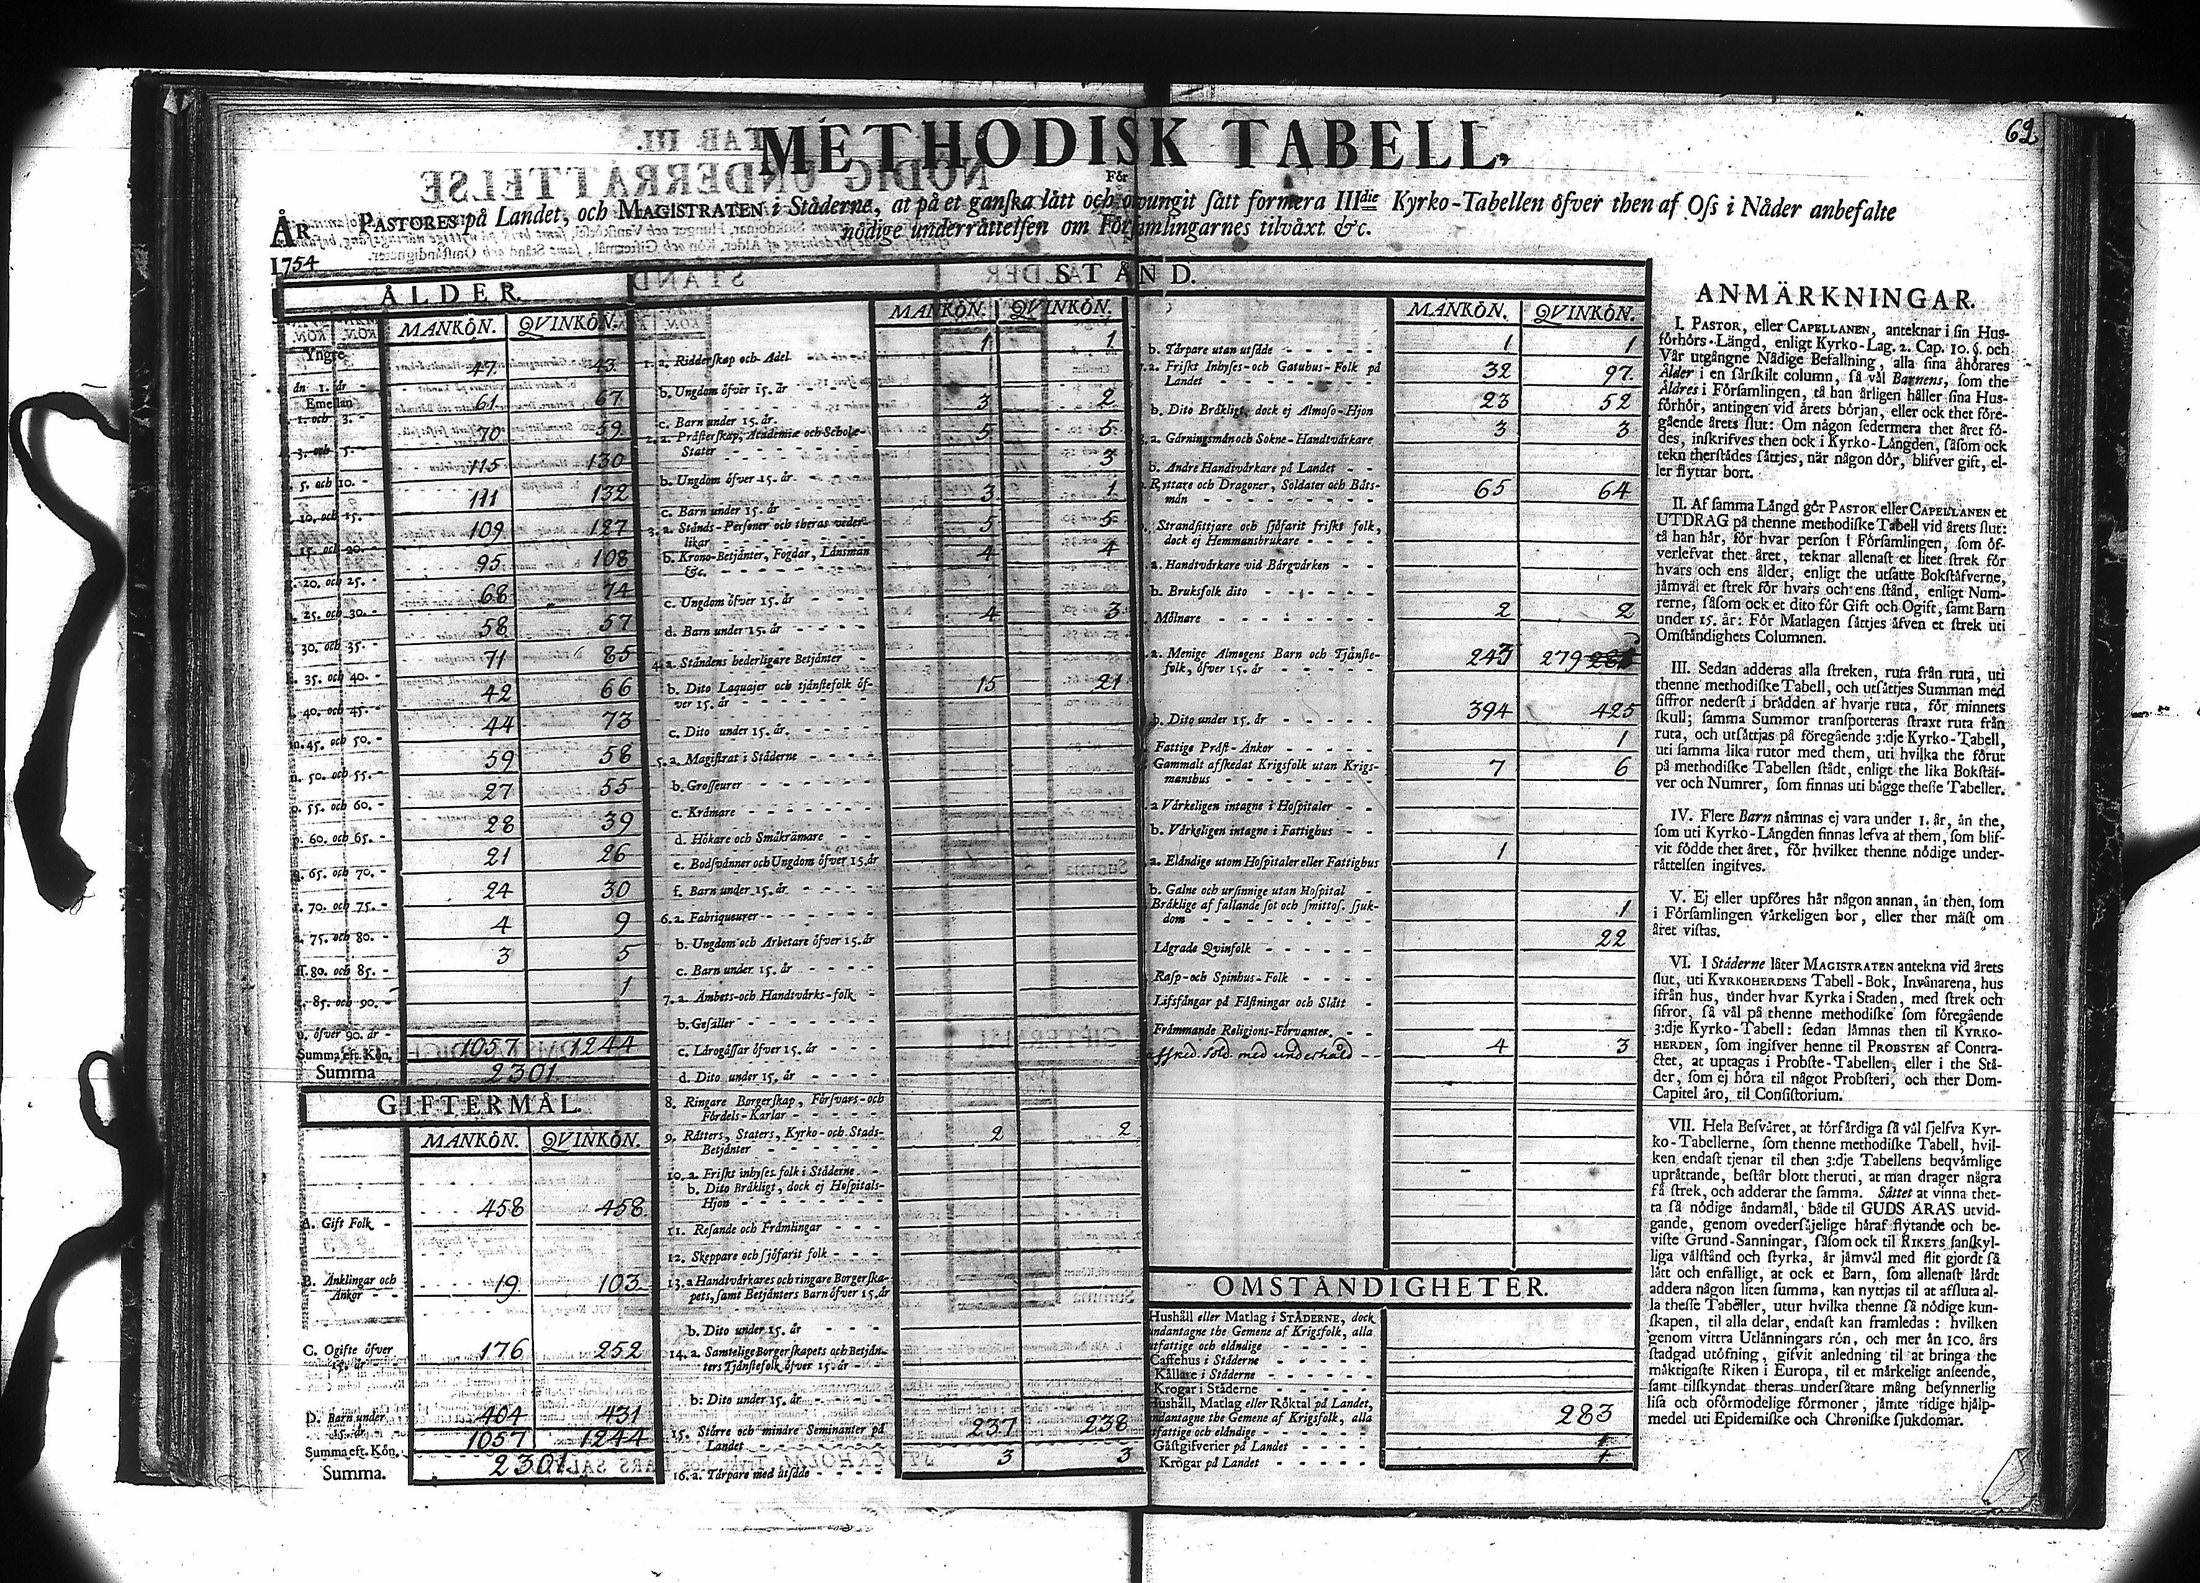 62
METHODISK TABELL,
För
PASTORES på Landet, och MAGISTRATEN i Ståderne, at på et ganska lått och otvungit sått formera IIIdie Kyrko-Tabellen öfver then af Oss i Nåder anbefalte
nödige underråttelsen om Församlingarnes tilvåxt &c.
ÅR
1754
ÅLDER.
MANKÖN. QVINKÖN.
Yngre än 1. år - 47 43
Emellan 1. och 3. 61 67
3. och 5. - 70 59
5. och 10. - 115 130
10. och 15. - 111 132
15. och 20. - 109 127
20. och 25. - 95 108
25. och 30. - 68 74
30. och 35. - 58 57
35. och 40. - 71 85
40. och 45. - 42 66
45. och 50. - 44 73
50. och 55. - 59 58
55. och 60. - 27 55
60. och 65. - 28 39
65. och 70. - 21 26
70. och 75. - 24 30
75. och 80. - 4 9
80. och 85. - 3 5
85. och 90. - 1
öfver 90. år -
Summa eft. Kön. 1057 1244
Summa 2301
GIFTERMÅL.
MANKÖN. QVINKÖN.
A. Gift Folk - 458 458
B. Änklingar och Änkor - - 19 103
C. Ogifte öfver 15. år - 176 252
D. Barn under 15. år - 404 431
Summa eft. Kön. 1057 1244
Summa. 2301
STÅND.
MANKÖN. QVINKÖN.
1. a. Ridderskap och Adel 1 1
b. Ungdom öfver 15. år
c. Barn under 15. år 3 2
2. a. Pråsterskap, Academiæ och Scholæ-
Stater 5 5
b. Ungdom öfver 15. år 3
c. Barn under 15. år 3 1
3. a. Stånds-Personer och theras veder-
likar 5 5
b. Krono-Betjånter, Fogdar, Lånsmån
&c. 4 4
c. Ungdom öfver 15. år
d. Barn under 15. år 4 3
4. a. Ståndens hederligare Betjånter
b. Dito Laquajer och tjånstefolk öf-
ver 15. år 15 21
c. Dito under 15. år.
5. a. Magistrat i Ståderne
b. Grosseurer
c. Kråmare
d. Hökare och Småkråmare
e. Bodsvånner och Ungdom öfver 15. år
f. Barn under 15. år
6. a. Fabriqueurer
b. Ungdom och Arbetare öfver 15. år
c. Barn under 15. år
7. a. Åmbets- och Handtvårks-folk
b. Gesåller
c. Lårogåssar öfver 15. år
d. Dito under 15. år
8. Ringare Borgerskap, Försvars- och
Fördels-Karlar
9. Råtters, Staters, Kyrko- och Stads-
Betjånter 2 2
10. a. Friskt inhyses folk i Ståderne
b. Dito Bråkligt, dock ej Hospitals-
Hjon
11. Resande och Fråmlingar
12. Skeppare och sjöfarit folk
13. a. Handtvårkares och ringare Borgerska-
pets, samt Betjånters Barn öfver 15. år
b. Dito under 15. år
14. a. Samtelige Borgerskapets och Betjån-
ters Tjånstefolk öfver 15. år
b. Dito under 15. år
15. Större och mindre Heminanter på
Landet 237 238
16. a. Tårpare med utsåde 3 3
MANKÖN. QVINKÖN.
b. Tårpare utan utsåde 1 1
a. Friskt Inhyses- och Gatuhus-Folk på
Landet 32 97
b. Dito Bråkligt, dock ej Almoso-Hjon 23 52
a. Gårningsmån och Sokne-Handtvårkare 3 3
b. Andre Handtvårkare på Landet
Ryttare och Dragoner, Soldater och Båts-
mån 65 64
Strandsittjare och sjöfarit friskt folk,
dock ej Hemmansbrukare
a. Handtvårkare vid Bårgvårken
b. Bruksfolk dito
Mölnare 2 2
a. Menige Almogens Barn och Tjånste-
folk, öfver 15. år 243 279
b. Dito under 15. år 394 425
Fattige Pråst-Änkor 1
Gammalt afskedat Krigsfolk utan Krigs-
manshus 7 6
a. Vårkeligen intagne i Hospitaler
b. Vårkeligen intagne i Fattighus
a. Elåndige utom Hospitaler eller Fattighus 1
b. Galne och ursinnige utan Hospital
Bråklige af fallande sot och smittos. sjuk-
dom 1
Lågrade Qvinfolk 22
Rasp- och Spinhus-Folk
Lifsfångar på Fåstningar och Slått
Fråmmande Religions-Förvanter
afsked. Sold. med underhåld 4 3
OMSTÅNDIGHETER.
Hushåll eller Matlag i STÅDERNE, dock
undantagne the Gemene af Krigsfolk, alla
utfattige och elåndige
Caffehus i Ståderne
Kållare i Ståderne
Krogar i Ståderne
Hushåll, Matlag eller Röktal på Landet,
undantagne the Gemene af Krigsfolk, alla
utfattige och elåndige 283
Gåstgifverier på Landet 1
Krogar på Landet 1
ANMÄRKNINGAR.
I. PASTOR, eller CAPELLANEN, anteknar i sin Hus-
förhörs-Långd, enligt Kyrko-Lag. 2. Cap. 10. §. och
Vår utgångne Nådige Befallning, alla sina åhörares
Ålder i en sårskilt column, så vål Barnens, som the
Åldres i Församlingen, tå han årligen håller sina Hus-
förhör, antingen vid årets början, eller ock thet före-
gående årets slut: Om någon sedermera thet året fö-
des, inskrifves then ock i Kyrko-Långden, såsom ock
tekn therstådes såttjes, når någon dör, blifver gift, el-
ler flyttar bort.
II. Af samma Långd gör PASTOR eller CAPELLANEN et
UTDRAG på thenne methodiske Tabell vid årets slut:
tå han hår, för hvar person i Församlingen, som öf-
verlefvat thet året, teknar allenast et litet strek för
hvars och ens ålder, enligt the utsatte Bokståfverne,
jåmvål et strek för hvars och ens stånd, enligt Num-
rerne, såsom ock et dito för Gift och Ogift, samt Barn
under 15. år: För Matlagen såttjes åfven et strek uti
Omståndighets Columnen.
III. Sedan adderas alla streken, ruta från ruta, uti
thenne methodiske Tabell, och utsåttjes Summan med
siffror nederst i brådden af hvarje ruta, för minnets
skull; samma Summor transporteras straxt ruta från
ruta, och utsåttjas på föregående 3:dje Kyrko-Tabell,
uti samma lika rutor med them, uti hvilka the förut
på methodiske Tabellen stådt, enligt the lika Bokståf-
ver och Numrer, som finnas uti bågge thesse Tabeller.
IV. Flere Barn nåmnas ej vara under 1. år, ån the,
som uti Kyrko-Långden finnas lefva af them, som blif-
vit födde thet året, för hvilket thenne nödige under-
råttelsen ingifves.
V. Ej eller upföres hår någon annan, ån then, som
i Församlingen vårkeligen bor, eller ther måst om
året vistas.
VI. I Ståderne låter MAGISTRATEN antekna vid årets
slut, uti KYRKOHERDENS Tabell-Bok, Invånarena, hus
ifrån hus, under hvar Kyrka i Staden, med strek och
sifror, så vål på thenne methodiske som föregående
3:dje Kyrko-Tabell: sedan låmnas then til KYRKO-
HERDEN, som ingifver henne til PROBSTEN af Contra-
ctet, at uptagas i Probste-Tabellen, eller i the Stå-
der, som ej höra til något Probsteri, och ther Dom-
Capitel åro, til Consistorium.
VII. Hela Besvåret, at förfårdiga så vål sjelfva Kyr-
ko-Tabellerne, som thenne methodiske Tabell, hvil-
ken endast tjenar til then 3:dje Tabellens beqvåmlige
upråttande, beståt blott theruti, at man drager några
få strek, och adderar the samma. Såttet at vinna thet-
ta så nödige åndamål, både til GUDS ÄRAS utvid-
gande, genom ovedersåjelige håraf flytande och be-
viste Grund-Sanningar, såsom ock til RIKETS sanskyl-
liga vålstånd och styrka, år jåmvål med flit gjordt så
lått och enfalligt, at ock et Barn, som allenast lårdt
addera någon liten summa, kan nyttjas til at afsluta al-
la thesse Tabeller, utur hvilka thenne så nödige kun-
skapen, til alla delar, endast kan framledas: hvilken
genom vittra Utlånningars rön, och mer ån 100. års
stadgad utöfning, gifvit anledning til at bringa the
måktigaste Riken i Europa, til et mårkeligt anseende,
samt tilskyndat theras undersåtare mång besynnerlig
lisa och oförmodelige förmoner, jåmte tidige hjålp-
medel uti Epidemiske och Chroniske sjukdomar.